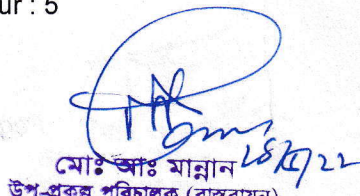 ur : 5
মোঃ আঃ মান্নান
উপ-প্রকল্প পরিচালক (বাস্তবায়ন)